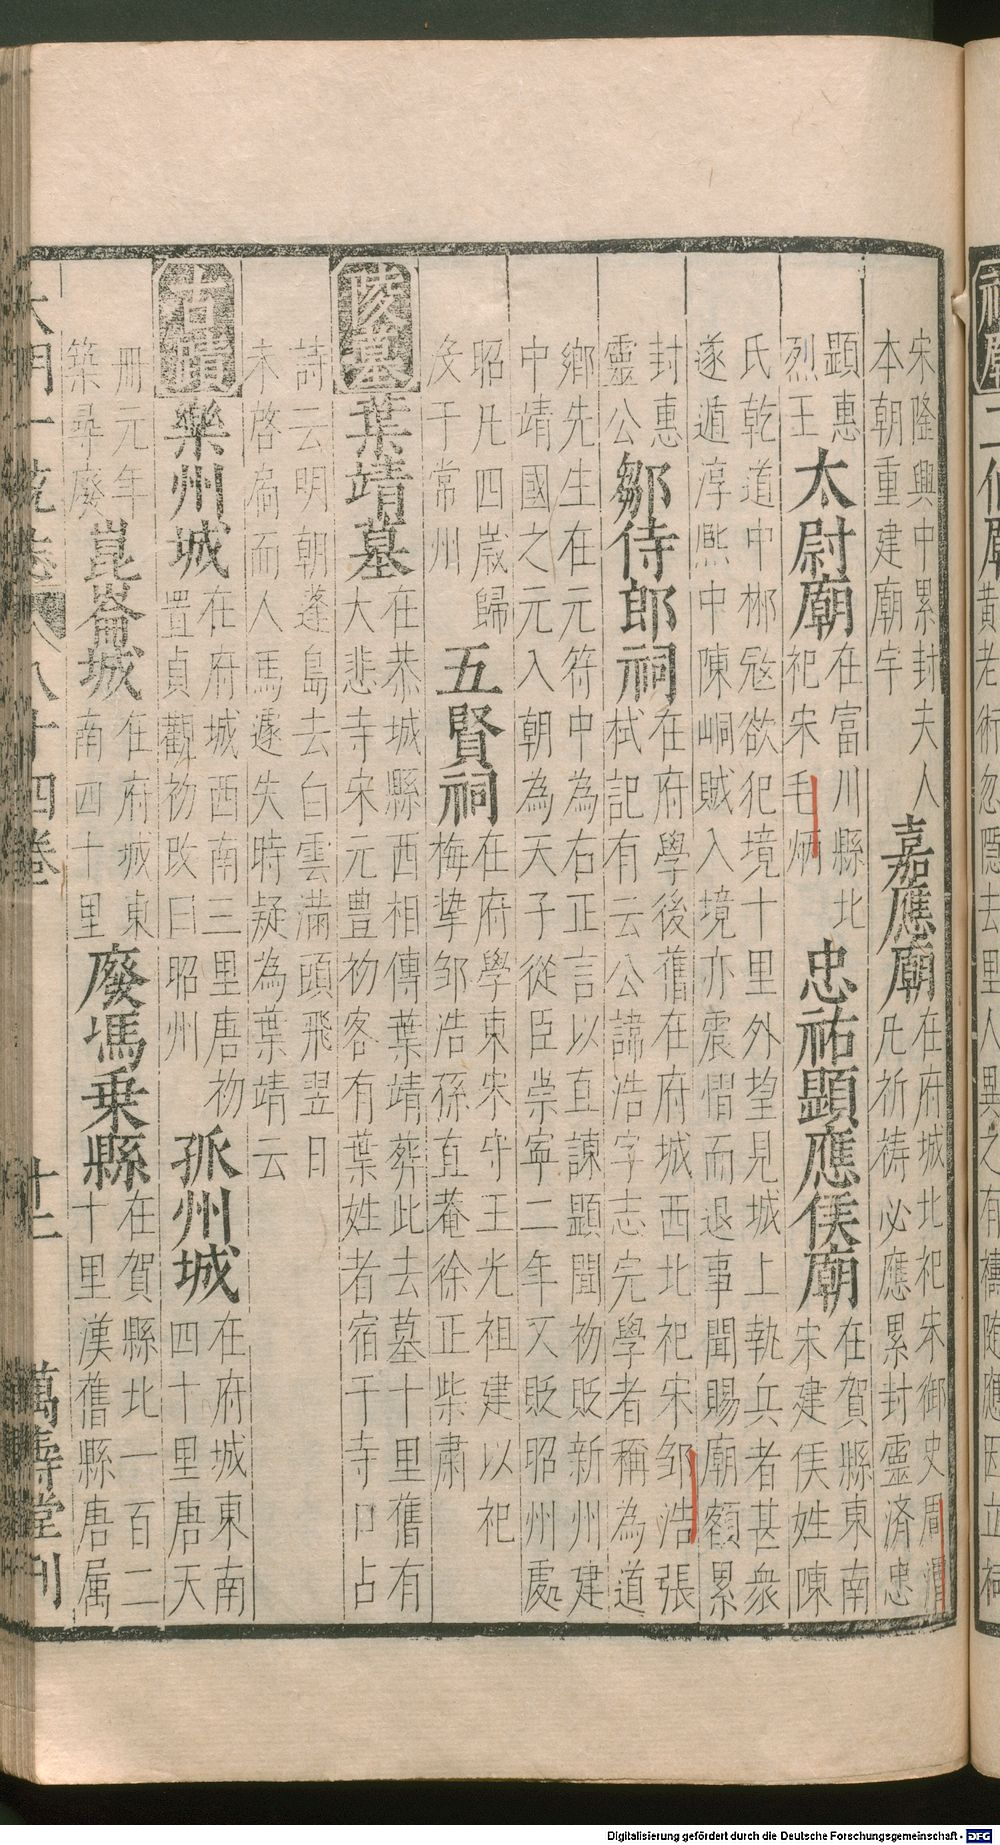 黃老術忽隱去里人異之有禱隨應因立祠
宋隆興中累封夫人
本朝重建廟宇
嘉應廟
在府城北祀宋御史周渭
凡祈禱必應累封靈濟忠
顯惠
烈王
太尉廟
在富川縣北
祀宋毛炳
忠祐顯應侯廟
在賀縣東南
宋建侯姓陳
氏乾道中郴寇欲犯境十里外望見城上執兵者甚衆
遂遁淳熙中陳峒賊入境亦震慴而退事聞賜廟額累
封惠
靈公
鄒侍郎祠
在府學後舊在府城西北祀宋邹浩張
栻記有云公諱浩字志完學者稱為道
鄉先生在元符中為右正言以直諫顯聞初貶新州建
中靖國之元入朝為天子從臣崇寧二年又貶昭州處
昭凡四歲歸
没于常州
五賢祠
在府學東宋守王光祖建以祀
梅摯邹浩孫直菴徐正柴肅
陵墓
葉靖墓
在恭城縣西相傳葉靖葬此去墓十里舊有
大悲寺宋元豊初客有葉姓者宿于寺口占
詩云明朝蓬島去白雲滿頭飛翌日
未啓扃而人馬遽失時疑為葉靖云
古蹟
樂州城
在府城西南三里唐初
置貞觀初改曰昭州
孤州城
在府城東南
四十里唐天
冊元年
築尋廢
崑崙城
在府城東
南四十里
廢馮乗縣
在賀縣北一百二
十里漢舊縣唐属
八十四卷
十二
萬壽堂刊
Digitalisierung gefördert durch die Deutsche Forschungsgemeinschaft - DFG